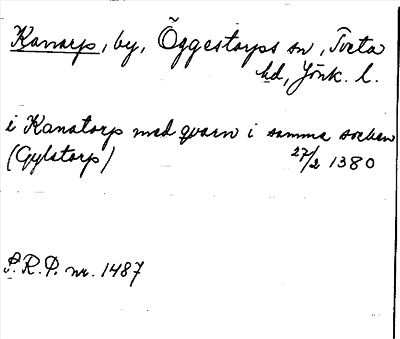 Kanarp, by, Öggestorps sn, Tveta
hd, Jönk. l.
i Kanatorp med qvarn i samma socken
(Gylstorp) 27/2 1380
S.R.P. nr. 1487